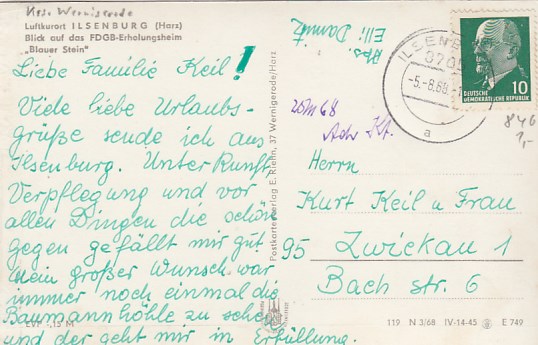 Krs. Wernigerode
Luftkurort ILSENBURG (Harz)
Blick auf das FDGB-Erholungsheim
„Blauer Stein"
Liebe Familie Keil!
Viele liebe Urlaubs-
grüße sende ich aus
Ilsenburg. Unterkunft,
Verpflegung und vor
allen Dingen die schöne
Gegen gefällt mir gut.
Mein großer Wunsch war
immer noch einmal die
Baumannhöhle zu sehen
und der geht mir in Erfüllung.
EVP -,15 M
Abs.
Elli
Postkartenverlag E. Riehn, 37 Wernigerode/Harz
ILSENBURG
3705
-5.-8.68
a
10
DEUTSCHE
DEMOKRATISCHE REPUBLIK
Herrn
Kurt Keil u Frau
95 Zwickau 1
Bach str. 6
119 N 3/68 IV-14-45 E 749